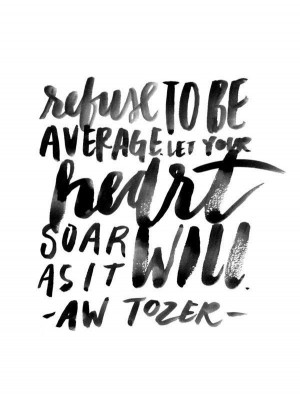 refuse TO BE
AVERAGE. LET YOUR
heart
SOAR WILL.
AS IT
-AW TOZER-